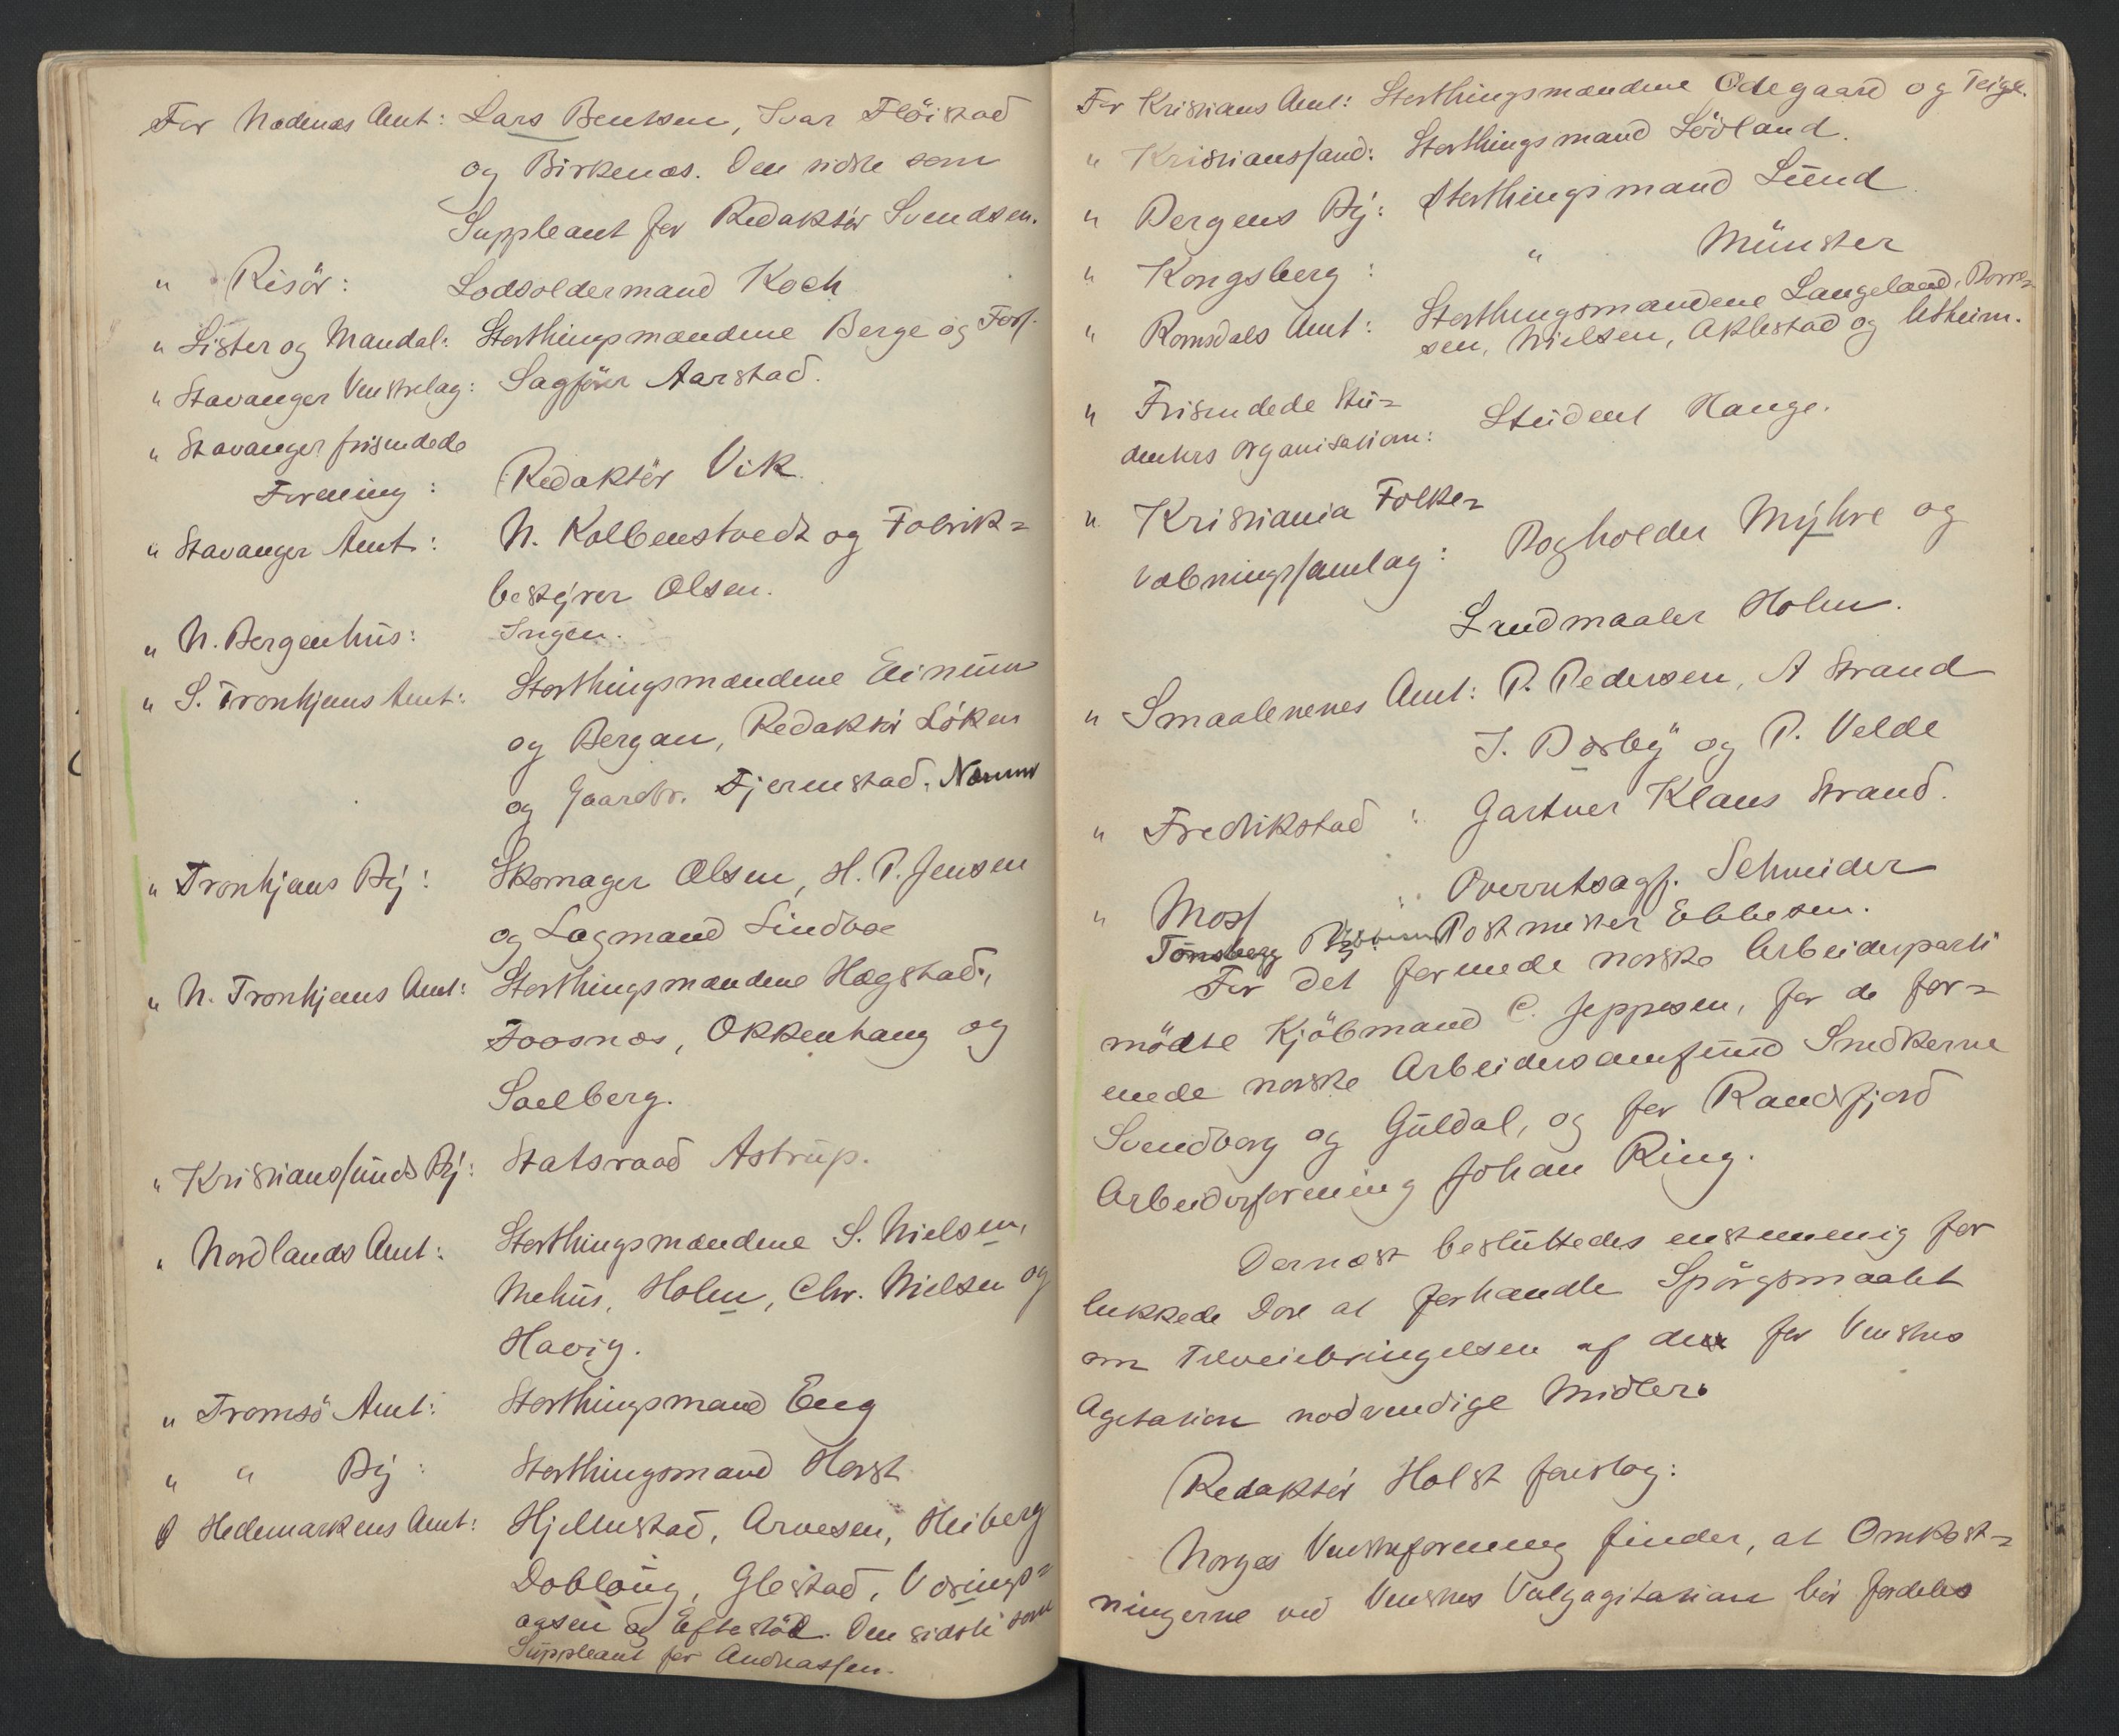 For Nedenæs Amt: Lars Bentsen, Ivar Flöistad
og Birkenæs. Den sidste som
Suppleant for Redaktör Svendsen.
" Risör: Lodsoldermand Koch
" Lister og Mandal: Storthingsmændene Berge og Foss.
" Stavanger Venstrelag: Sagförer Aarstad.
" Stavanger frisindede
Forening: Redaktör Vik.
" Stavanger Amt: N. Kolbenstvedt og Fabrik=
bestyrer Olsen.
" N. Bergenhus: Ingen.
" S. Tronhjems Amt: Storthingsmændene Five
og Bergan, Redaktör Löken
og Gaardbr. Fjermstad.
" Tronhjems By: Skomager Olsen, H. P. Jensen
og Lagmand Lindboe
" N. Tronhjems Amt: Storthingsmændene Hægstad,
Foosnæs, Okkenhaug og
Saelberg.
" Kristianssunds By: Statsraad Astrup.
" Nordlands Amt: Storthingsmændene S. Nielsen,
Mehus, Holm, Chr. Nielsen og
Havig.
" Tromsö Amt: Storthingsmand Eng
" " By: Storthingsmand Horst
" Hedemarkens Amt: Hjelmstad, Arvesen, Heiberg
Dobloug, Glestad, Værings=
aasen og Eftestöl. Den sidste som
Suppleant for Andreassen.
For Kristians Amt: Storthingsmændene Ödegaard og Teige.
" Kristianssand: Storthingsmand Lövland.
" Bergens By: Storthingsmand Lund.
" Kongsberg: " Münster
" Romsdals Amt: Storthingsmændene Langeland, Norre=
sen, Nielsen, Aklestad og Utheim.
" Frisindede Stu=
denters Organisation: Student Hauge.
" Kristiania Folke=
væbningssamlag: Bogholder Myhre og
Landmaaler Holm.
" Smaalenenes Amt: P. Pedersen, A Strand
I. Dæhly og P. Velde
" Fredrikstad: Gartner Klaus Strand.
" Moss: Overretssagf. Schneider
Tönsberg By: Postmester Ebbesen.
For det forenede norske Arbeiderparti
mödte Kjöbmand C. Jeppesen, for de for=
enede norske Arbeidersamfund Snedkerne
Svendborg og Guldal, og for Randsfjord
Arbeiderforening Johan Ring.
Dernæst besluttedes enstemmig for
lukkede Döre at forhandle Spörgsmaalet
om Tilveiebringelsen af de for Venstres
Agitation nödvendige Midler.
Redaktör Holst foreslog:
Norges Venstreforening finder, at Omkost=
ningerne ved Venstres Valgagitation bör fordeles